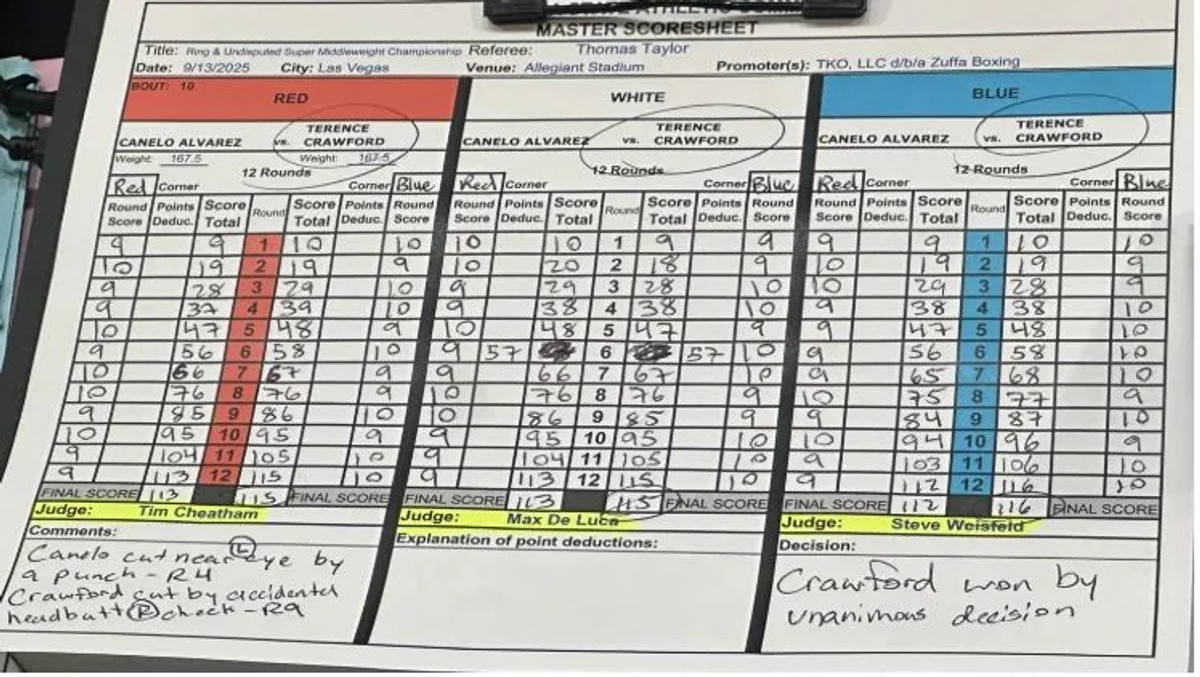 MASTER SCORESHEET
Title: Ring & Undisputed Super Middleweight Championship Referee: Thomas Taylor
Date: 9/13/2025 City: Las Vegas Venue: Allegiant Stadium Promoter(s): TKO, LLC d/b/a Zuffa Boxing
BOUT: 10
RED WHITE BLUE
CANELO ALVAREZ vs. TERENCE CRAWFORD CANELO ALVAREZ vs. TERENCE CRAWFORD CANELO ALVAREZ vs. TERENCE CRAWFORD
Weight: 167.5 Weight: 167.5
12 Rounds 12 Rounds 12 Rounds
Red Corner Corner Blue Red Corner Corner Blue Red Corner Corner Blue
Round Score Points Deduc. Score Total Round Score Total Points Deduc. Round Score Round Score Points Deduc. Score Total Round Score Total Points Deduc. Round Score Round Score Points Deduc. Score Total Round Score Total Points Deduc. Round Score
9 9 1 10 10 10 10 1 9 9 9 9 1 10 10
10 19 2 19 9 10 20 2 18 9 10 19 2 19 9
9 28 3 29 10 9 29 3 28 10 10 29 3 28 9
9 37 4 39 10 9 38 4 38 10 9 38 4 38 10
10 47 5 48 9 10 48 5 47 9 9 47 5 48 10
9 56 6 58 10 9 57 6 57 10 9 56 6 58 10
10 66 7 67 9 9 66 7 67 10 9 65 7 68 10
10 76 8 76 9 10 76 8 76 9 10 75 8 77 9
9 85 9 86 10 10 86 9 85 9 9 84 9 87 10
10 95 10 95 9 9 95 10 95 10 10 94 10 96 9
9 104 11 105 10 9 104 11 105 10 9 103 11 106 10
9 113 12 115 10 9 113 12 115 10 9 112 12 116 10
FINAL SCORE 113 115 FINAL SCORE FINAL SCORE 113 115 FINAL SCORE FINAL SCORE 112 116 FINAL SCORE
Judge: Tim Cheatham Judge: Max De Luca Judge: Steve Weisfeld
Comments: Explanation of point deductions: Decision:
Canelo cut near L eye by
a punch - R4
Crawford cut by accidental
headbutt R check - R9
Crawford won by
unanimous decision